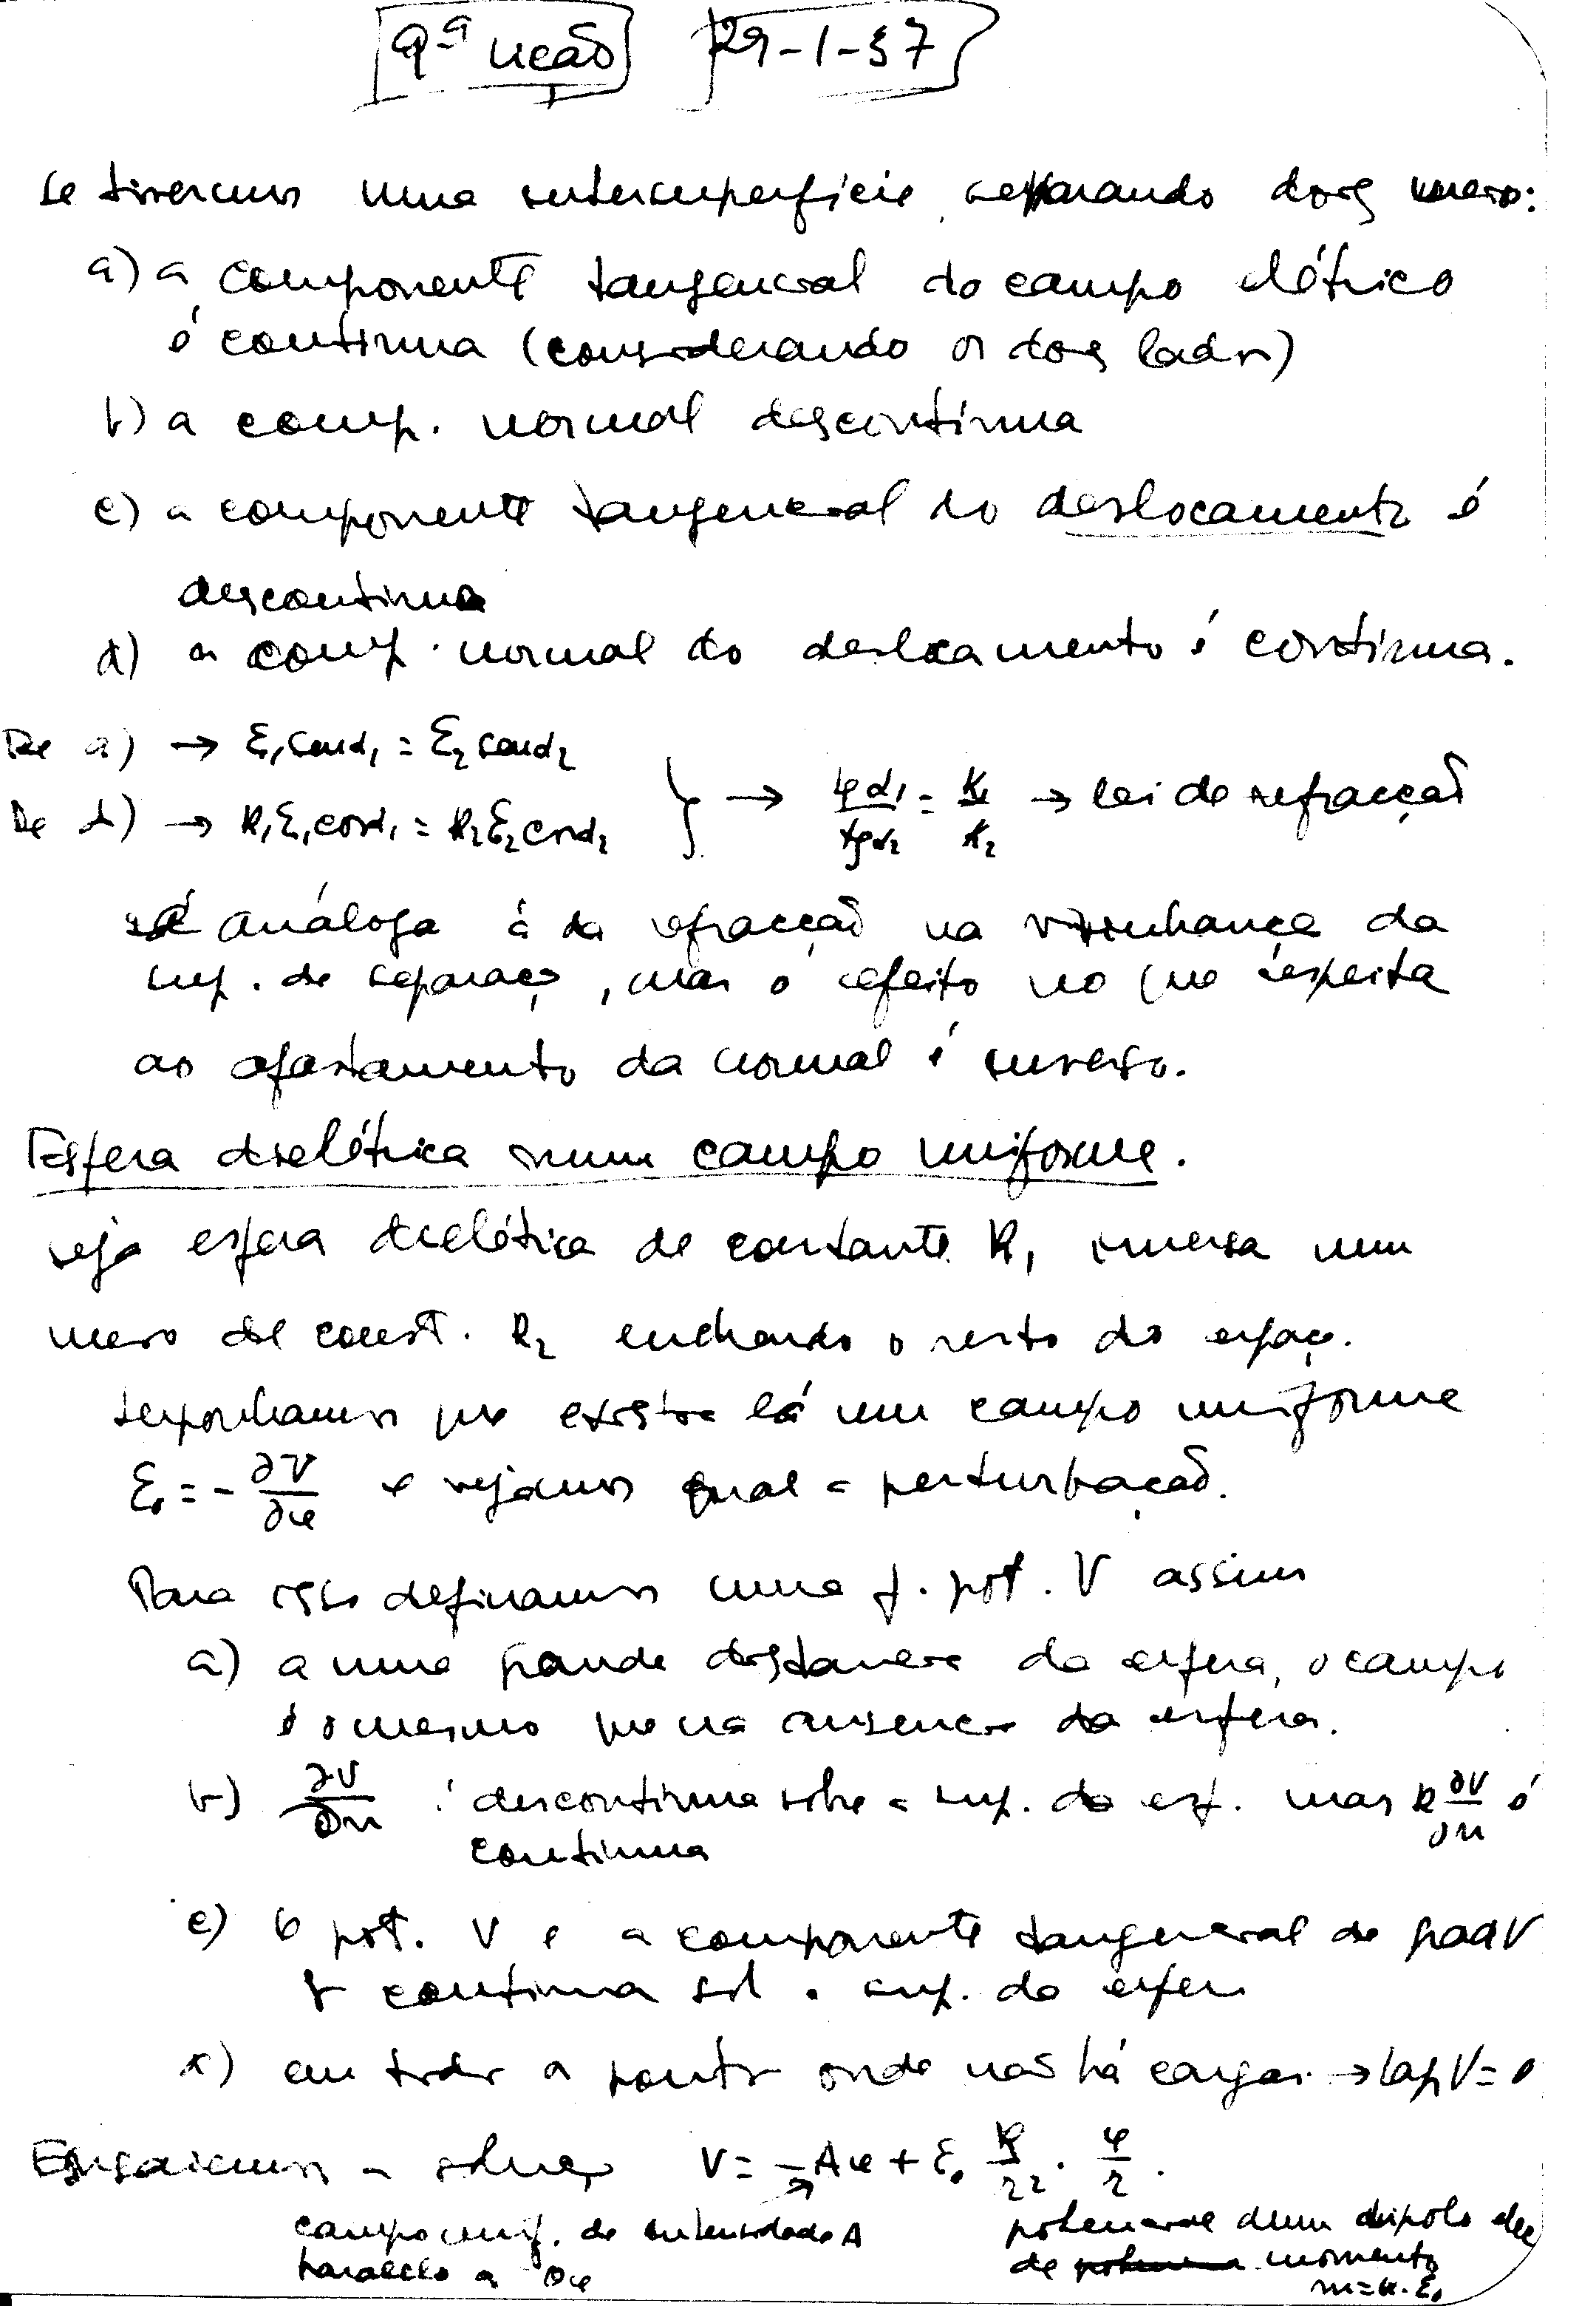 9ª lição 29-1-37
Se tivermos uma intersuperfície separando dois meios:
a) a componente tangencial do campo elétrico
é contínua (considerando os dois lados)
b) a comp. normal descontínua
c) a componente tangencial do deslocamento é
descontínua
d) a comp. normal do deslocamento é contínua.
De a) → Ɛ₁ senα₁ = Ɛ₂ senα₂
De d) → K₁Ɛ₁cosα₁ = K₂Ɛ₂cosα₂ } → tgα₁/tgα₂ = K₁/K₂ → lei de refracção
análoga à da refracção na vizinhança da
sup. de separação, mas o efeito no que respeita
ao afastamento da normal é inverso.
Esfera dielétrica num campo uniforme.
Seja esfera dielétrica de constante K₁ imersa num
meio de const. K₂ enchendo o resto do espaço.
Suponhamos que existia lá um campo uniforme
Ɛ₀ = - ∂V/∂x e vejamos qual a perturbação.
Para isso definamos uma f. pot. V assim
a) a uma grande distancia da esfera, o campo
é o mesmo que na ausencia da esfera.
b) ∂V/∂n é descontinua sobre a sup. da esf. mas K ∂V/∂n é
continua
c) O pot. V e a componente tangencial de grad V
é continua sob. a sup. da esfera
d) em todos os pontos onde não há cargas → lap V = 0
Ensaiemos a solução V = -Ax + Ɛ₀ K/r² · x/r.
campo unif. de intensidade A
paralelo a Ox
potencial dum dipolo ele
de momento
m = K.Ɛ₀